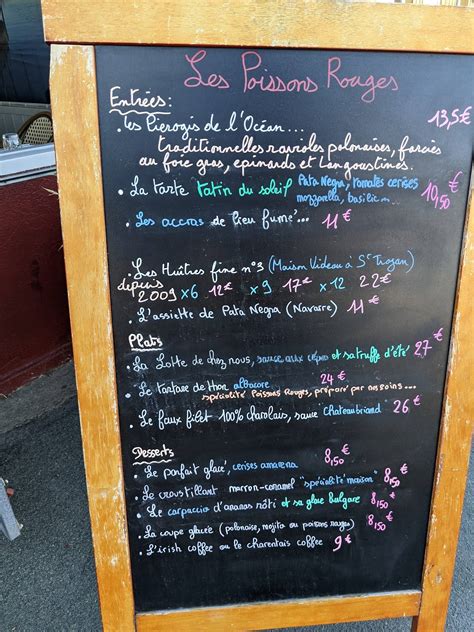 Les Poissons Rouges
Entrées:
• Les Pierogis de l'Océan... 13,5€
traditionnelles ravioles polonaises, farcies
au foie gras, epinards et Langoustines.
• La tarte tatin du soleil Pata Negra, tomates cerises 10,50€
mozzarella, basilic...
• Les accras de lieu fumé... 11€
• Les Huîtres fine n°3 (Maison Videau à St Trojan)
depuis
2009 x6 12€ x9 17€ x12 22€
• L'assiette de Pata Negra (Navarre) 11€
Plats
• La Lotte de chez nous, sauce aux cèpes et sa truffe d'été 27€
• Le tartare de thon albacore 24€
spécialité Poissons Rouges, préparé par nos soins...
• Le faux filet 100% charolais, sauce Chateaubriand 26€
Desserts
• Le parfait glacé, cerises amarena 8,50€
• Le croustillant marron-caramel "spécialité maison" 8,50€
• Le carpaccio d'ananas rôti et sa glace bulgare 8,50€
• La coupe glacée (polonaise, mojito ou poissons rouges) 8,50€
• L'irish coffee ou le charentais coffee 9€